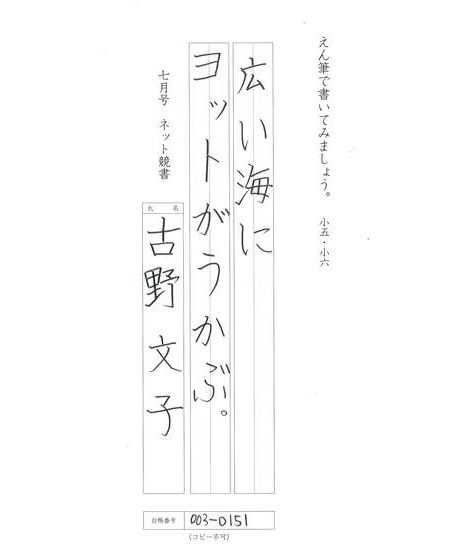 えん筆で書いてみましょう。 小五・小六
広い海に
ヨットがうかぶ。
七月号 ネット競書
氏名
古野文子
台帳番号 003-0151
(コピー不可)